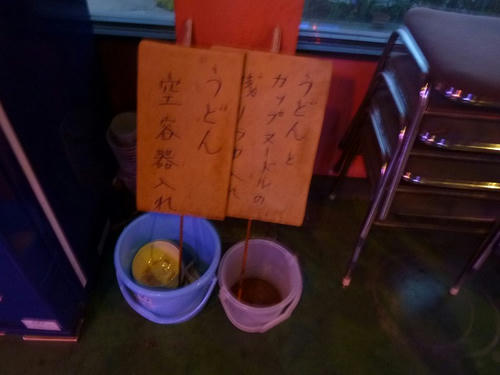 うどん
空容器入れ
うどんと
カップヌードルの
残り入れ